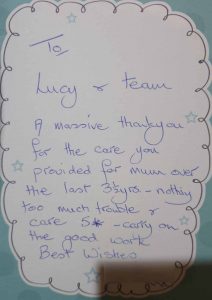 To
Lucy & team
A massive thankyou
for the care you
provided for mum over
the last 3½yrs - nothing
too much trouble &
care 5* - carry on
the good work
Best Wishes